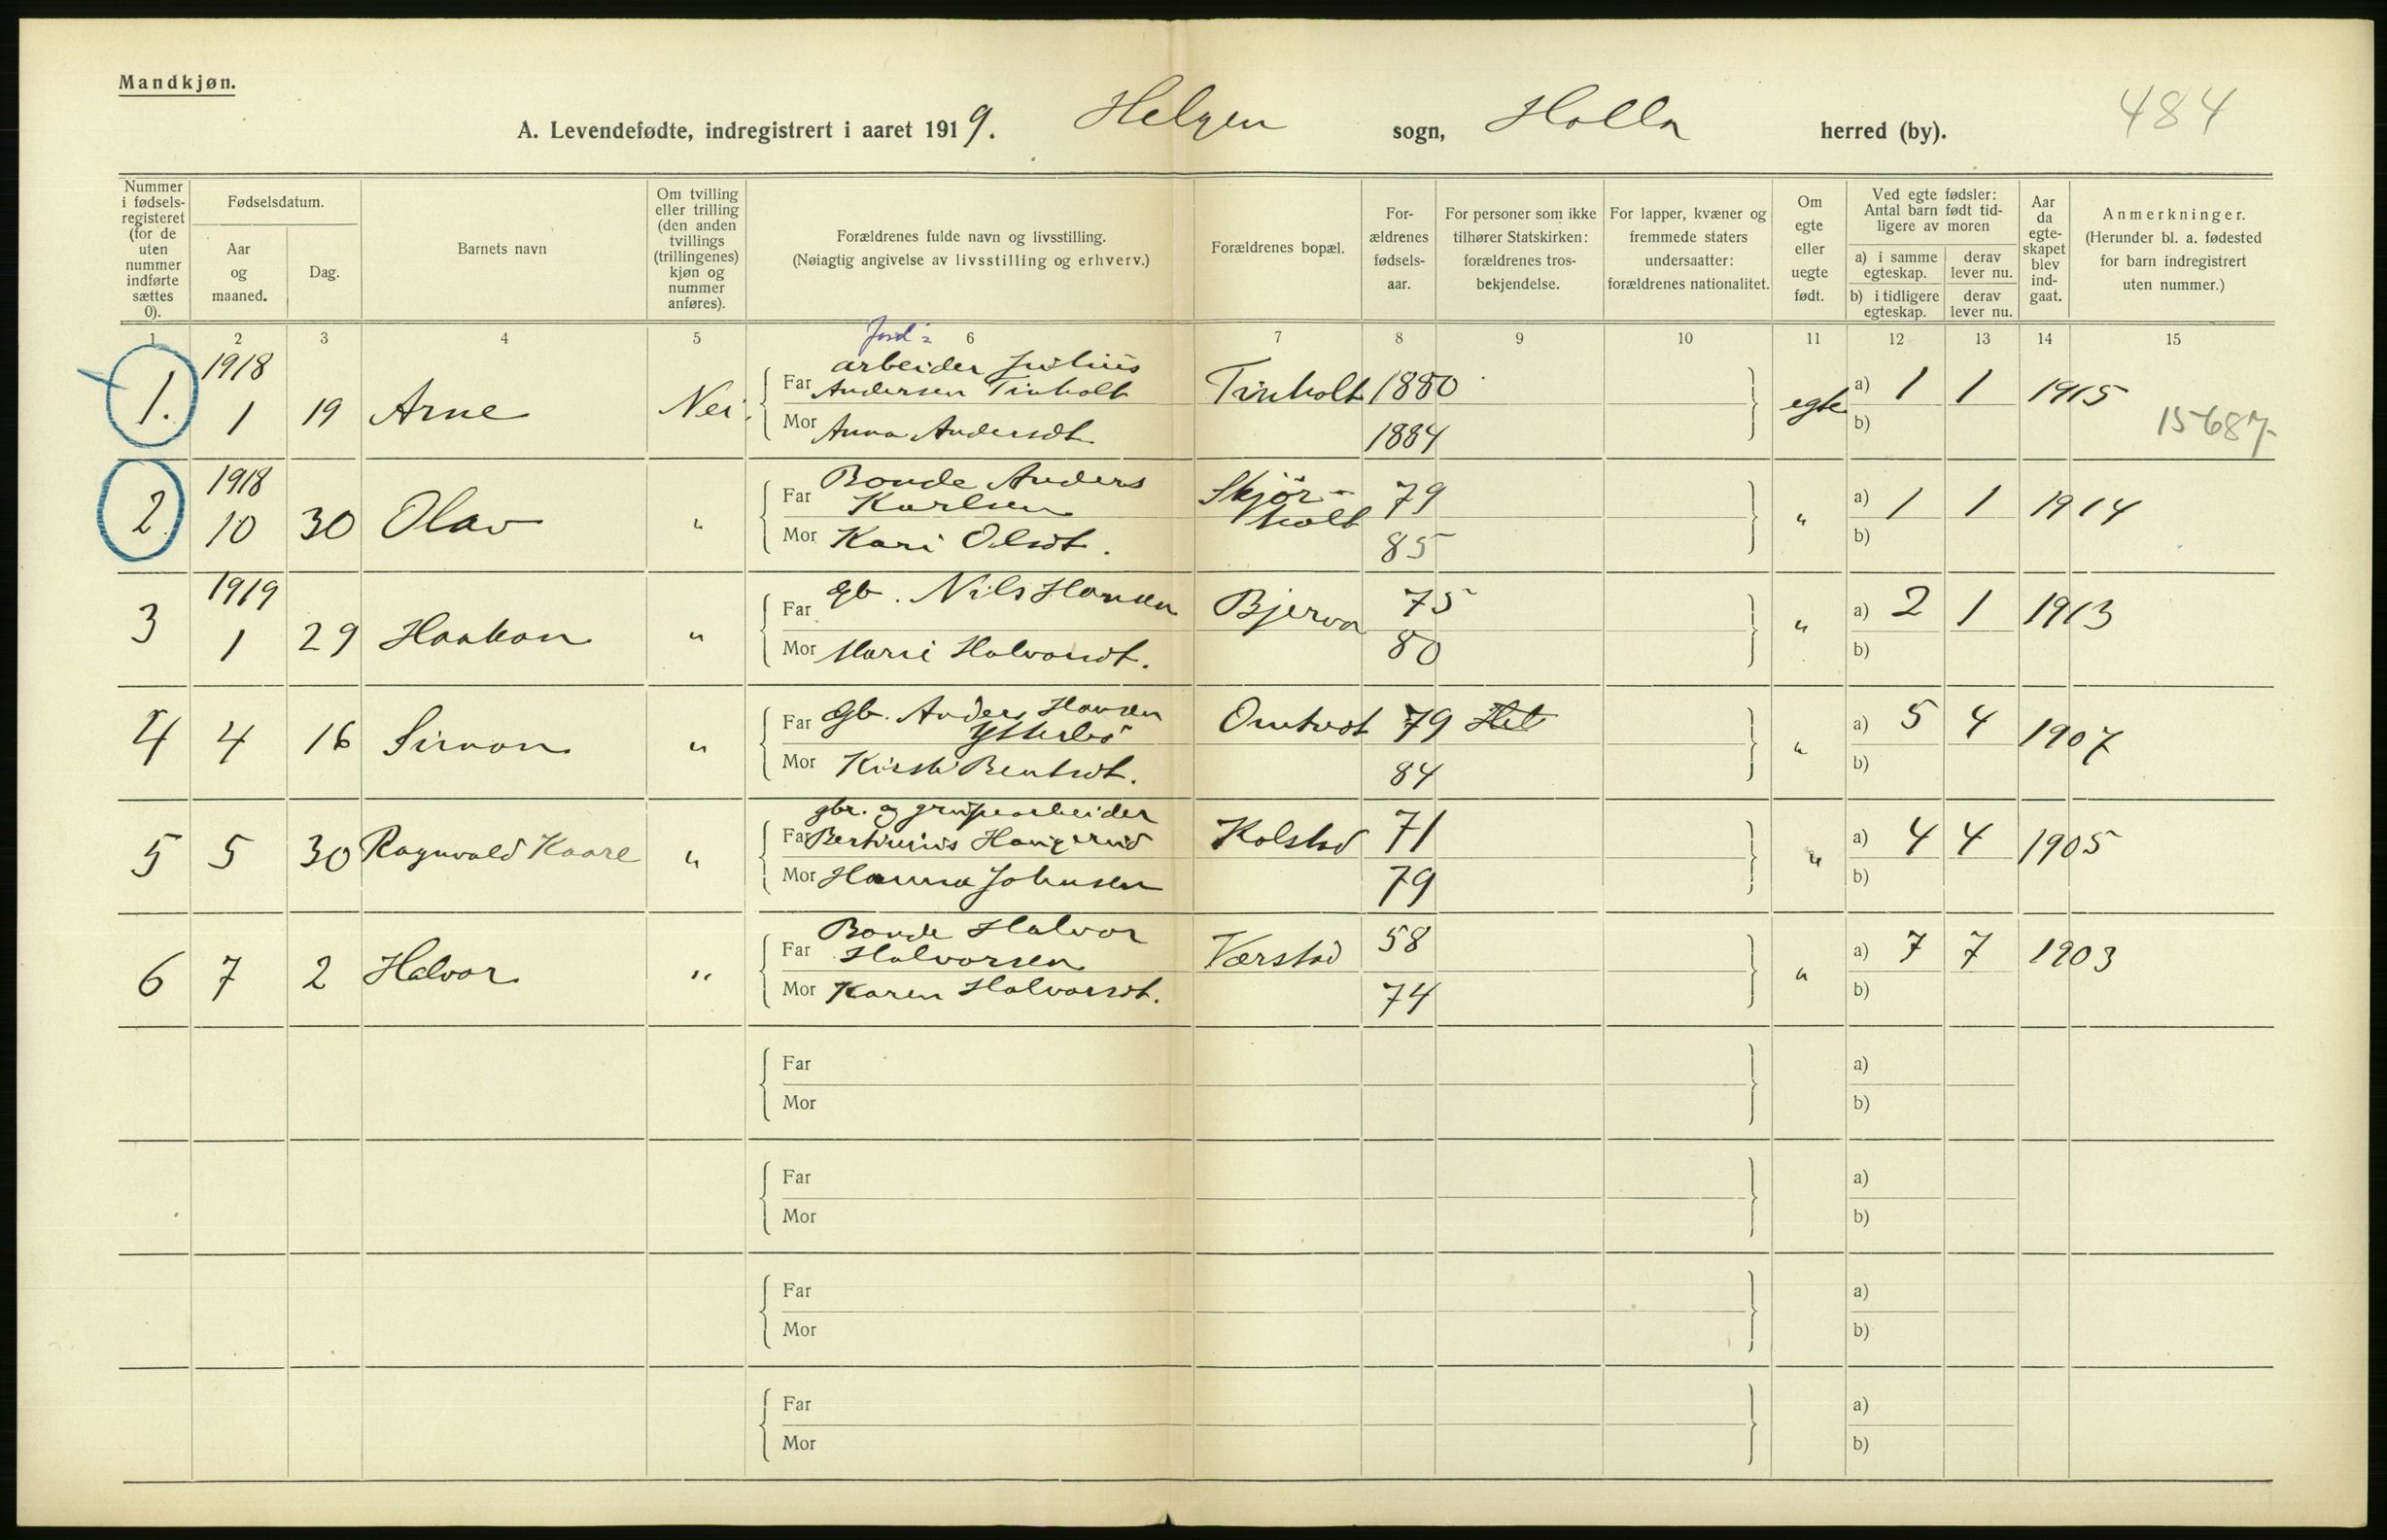 Mandkjøn.
484
A. Levendefødte, indregistrert i aaret 1919. Helgen sogn, Holla herred (by).
Nummer i fødselsregisteret (for de uten nummer indførte sættes 0).
Fødselsdatum.
Aar og maaned.
Dag.
Barnets navn
Om tvilling eller trilling (den anden tvillings (trillingenes) kjøn og nummer anføres).
Forældrenes fulde navn og livsstilling.
(Nøiagtig angivelse av livsstilling og erhverv.)
Forældrenes bopæl.
Forældrenes fødselsaar.
For personer som ikke tilhører Statskirken: forældrenes trosbekjendelse.
For lapper, kvæner og fremmede staters undersaatter: forældrenes nationalitet.
Om egte eller uegte født.
Ved egte fødsler: Antal barn født tidligere av moren
a) i samme egteskap.
derav lever nu.
b) i tidligere egteskap.
derav lever nu.
Aar da egteskapet blev indgaat.
Anmerkninger.
(Herunder bl. a. fødested for barn indregistrert uten nummer.)
1 2 3 4 5 6 7 8 9 10 11 12 13 14 15
Jord-
1. 1918 1 19 Arne Nei.
Far arbeider Julius Andersen Tinholt Tinholt 1880 egte a) 1 1 1915
Mor Anna Andersdt. 1884 b)
15687
2. 1918 10 30 Olav "
Far Bonde Anders Karlsen Skjör-holt 79 " a) 1 1 1914
Mor Kari Olsdt. 85 b)
3 1919 1 29 Haakon "
Far gb. Nils Hansen Bjerva 75 " a) 2 1 1913
Mor Marie Halvorsdt. 80 b)
4 4 16 Simon "
Far Gb. Anders Hansen Omtvedt 79 " a) 5 4 1907
Mor Kirsti Bentsdt. 84 b)
5 5 30 Ragnvald Kaare "
Far gbr. og grubearbeider Bertinius Haugerud Kolstad 71 " a) 4 4 1905
Mor Hanna Johnsen 79 b)
6 7 2 Halvor "
Far Bonde Halvor Halvorsen Værstad 58 " a) 7 7 1903
Mor Karen Halvorsdt. 74 b)
Far a)
Mor b)
Far a)
Mor b)
Far a)
Mor b)
Far a)
Mor b)